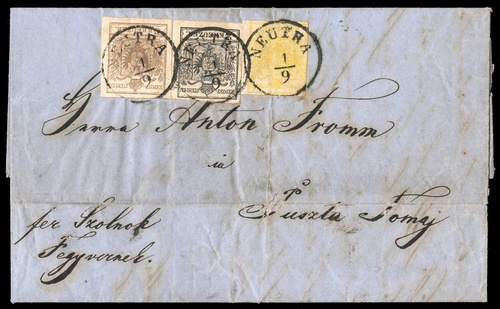 NEUTRA
1/9
NEUTRA
1/9
NEUTRA
1/9
Herrn Anton Fromm
in
Puszta Tomaj
per Szolnok
Fegyvernek.